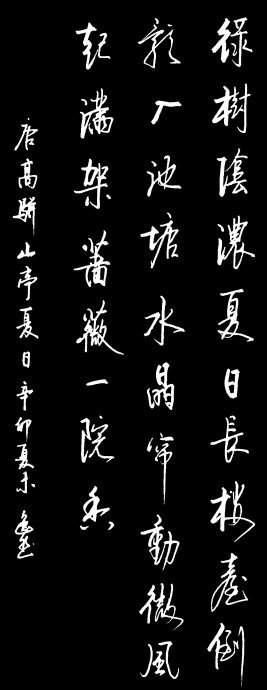 綠樹陰濃夏日長樓臺倒
影入池塘水晶帘動微風
起滿架薔薇一院香
唐高駢山亭夏日辛卯夏末